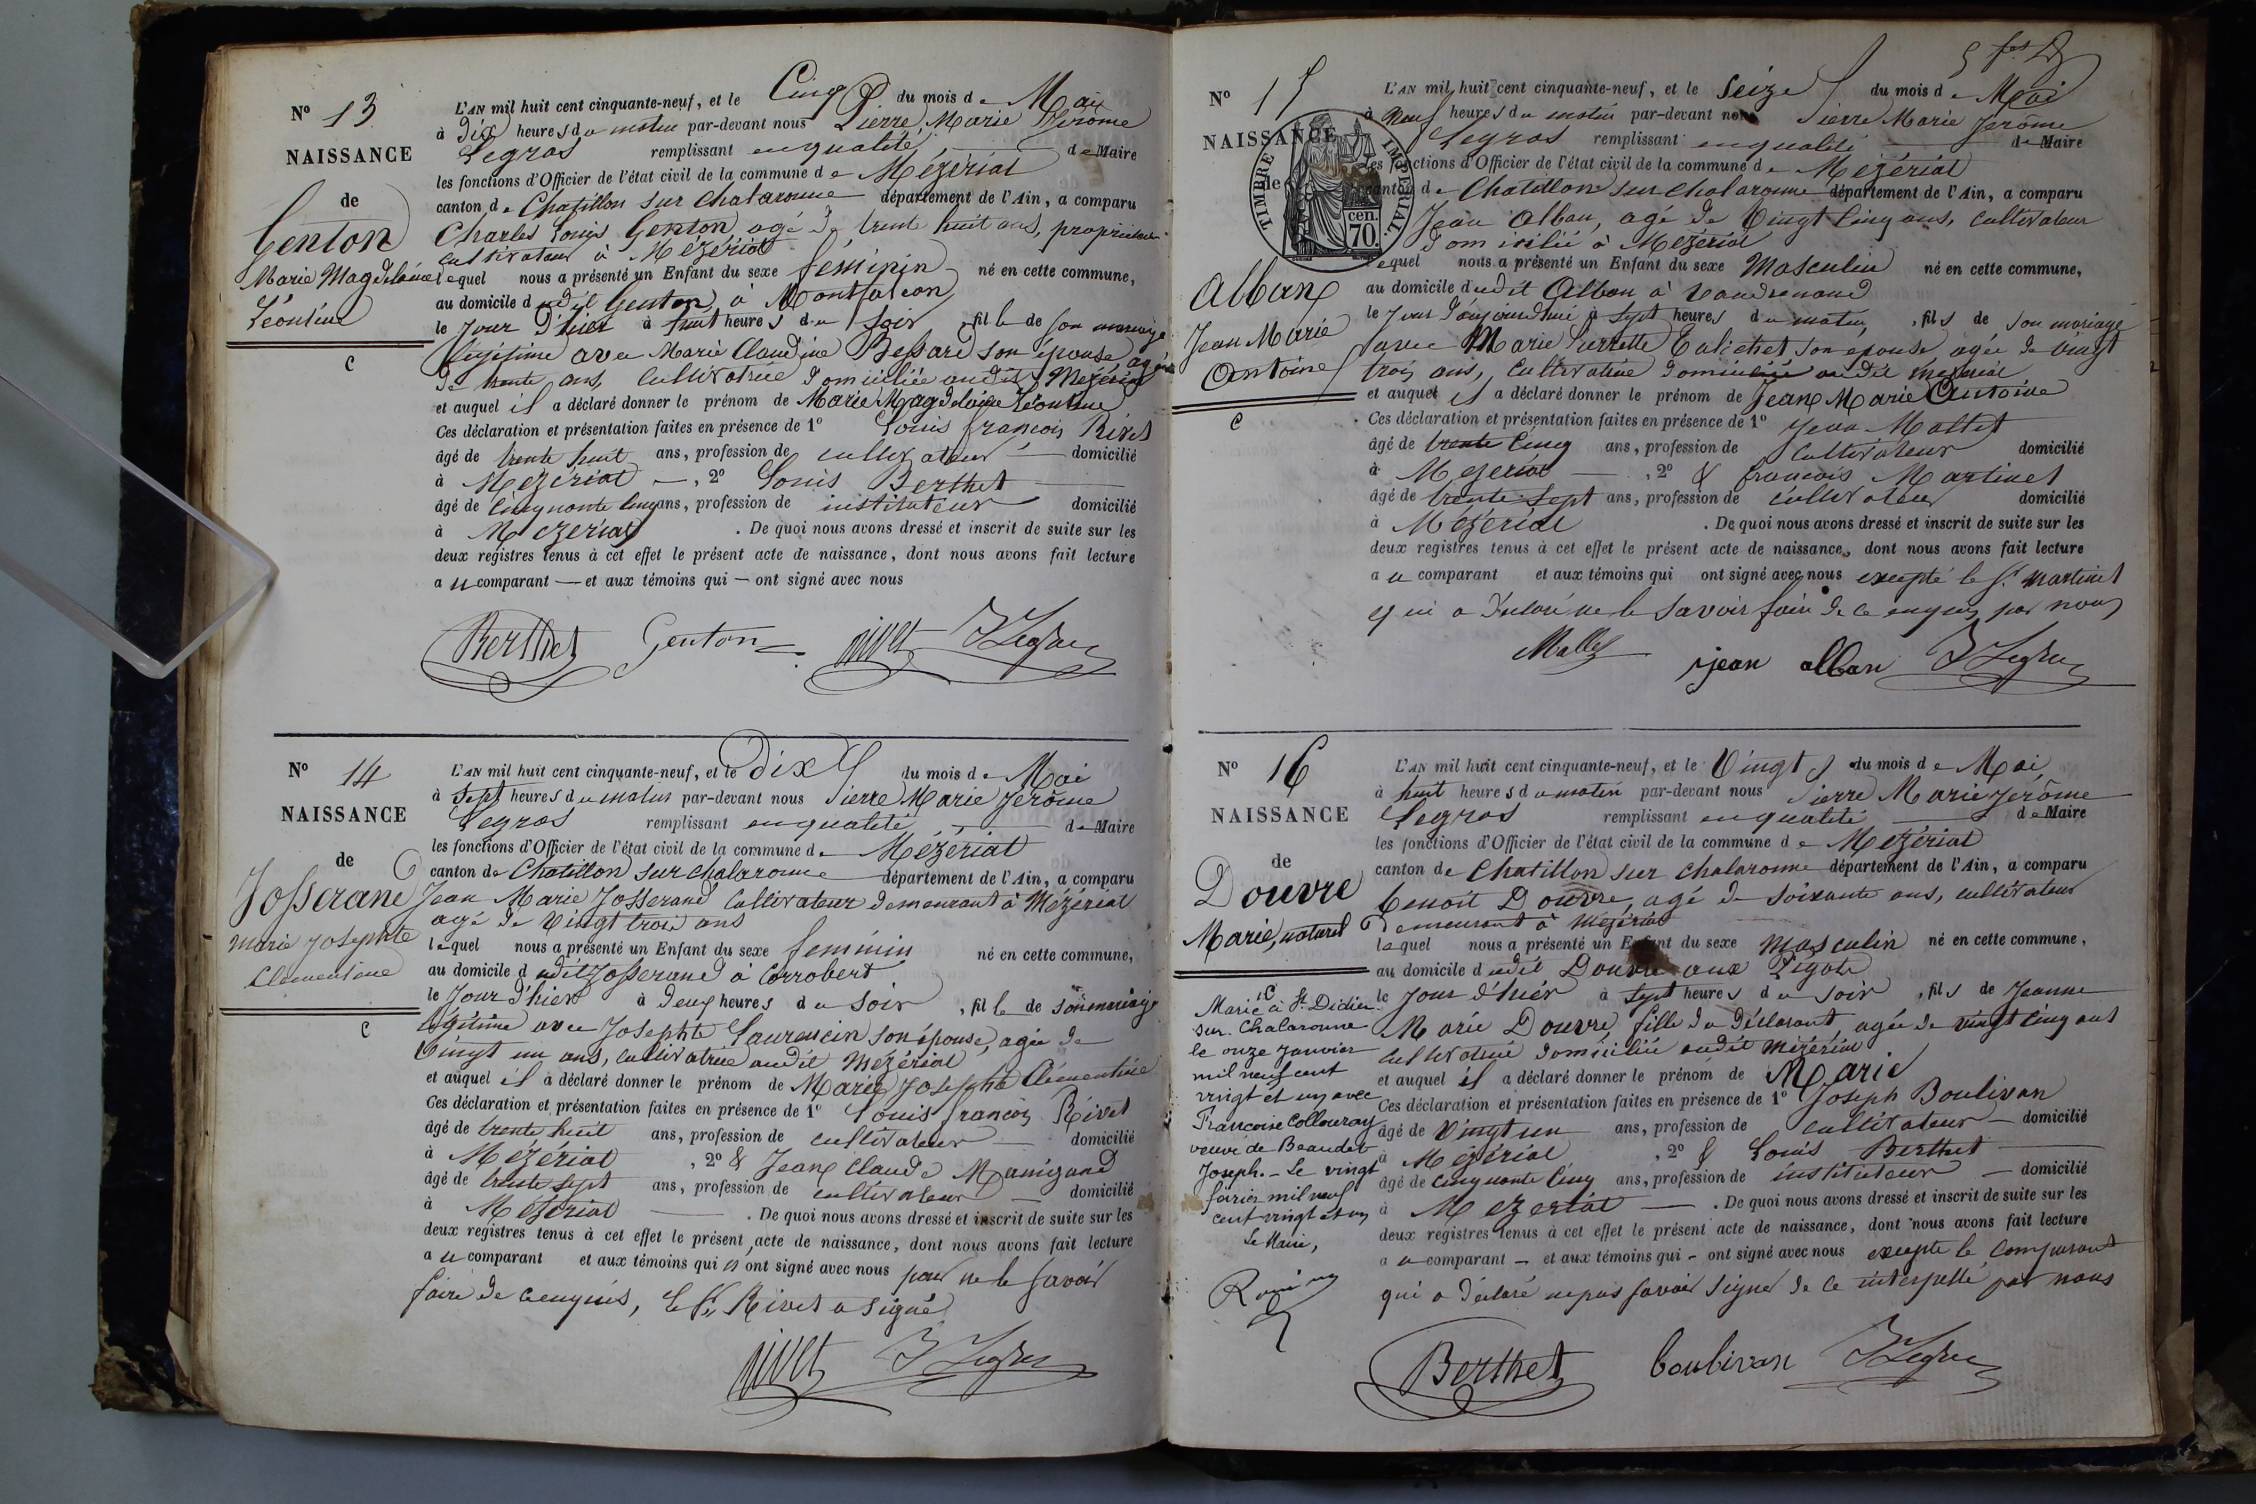 N° 13
NAISSANCE
de
Genton
Marie Magdelaine
Léontine
C
L'AN mil huit cent cinquante-neuf, et le Cinq du mois de Mai
à Dix heures du matin par-devant nous Pierre Marie Jerôme
Legros remplissant en qualité de Maire
les fonctions d'Officier de l'état civil de la commune de Mézériat
canton de Chatillon sur Chalaronne département de l'Ain, a comparu
Charles Louis Genton, agé de trente huit ans, propriétaire
cultivateur à Mézériat
lequel nous a présenté un Enfant du sexe féminin né en cette commune,
au domicile dudit Genton, à Montfalcon
le Jour d'hier à huit heures du soir, fille de son mariage
légitime avec Marie Claudine Bessard son épouse, agée
de trente ans, cultivatrice domiciliée audit Mézériat
et auquel il a déclaré donner le prénom de Marie Magdelaine Léontine
Ces déclaration et présentation faites en présence de 1° Louis françois Rivet
âgé de trente huit ans, profession de cultivateur domicilié
à Mézériat, 2° Louis Berthet
âgé de Cinquante Cinq ans, profession de instituteur domicilié
à Mézériat. De quoi nous avons dressé et inscrit de suite sur les
deux registres tenus à cet effet le présent acte de naissance, dont nous avons fait lecture
au comparant et aux témoins qui ont signé avec nous
Berthet Genton rivet J Legros
N° 14
NAISSANCE
de
Josserand
marie josephte
Clementine
C
L'AN mil huit cent cinquante-neuf, et le Dix du mois de Mai
à Sept heures du matin par-devant nous Pierre Marie Jerôme
Legros remplissant en qualité de Maire
les fonctions d'Officier de l'état civil de la commune de Mézériat
canton de Chatillon sur Chalaronne département de l'Ain, a comparu
Jean Marie Josserand Cultivateur demeurant à Mézériat
agé de Vingt trois ans
lequel nous a présenté un Enfant du sexe féminin né en cette commune,
au domicile dudit Josserand à Corrobert
le Jour d'hier à deux heures du soir, fille de son mariage
légitime avec Josephte Laurencin son épouse, agée de
Vingt un ans, cultivatrice audit Mézériat
et auquel il a déclaré donner le prénom de Marie Josephte Clémentine
Ces déclaration et présentation faites en présence de 1° Louis françois Rivet
âgé de trente huit ans, profession de cultivateur domicilié
à Mézériat, 2° & Jean Claude Manigand
âgé de trente sept ans, profession de cultivateur domicilié
à Mézériat. De quoi nous avons dressé et inscrit de suite sur les
deux registres tenus à cet effet le présent acte de naissance, dont nous avons fait lecture
au comparant et aux témoins qui n ont signé avec nous pour ne le savoir
faire de ce enquis, le Sr. Rivet a signé
rivet J Legros
5 fes
N° 15
NAISSANCE
de
TIMBRE IMPERIAL
cen.
70.
Alban
Jean Marie
Antoine
C
L'AN mil huit cent cinquante-neuf, et le Seize du mois de Mai
à Neuf heures du matin par-devant nous Pierre Marie Jerôme
Legros remplissant en qualité de Maire
les fonctions d'Officier de l'état civil de la commune de Mézériat
canton de Chatillon sur Chalaronne département de l'Ain, a comparu
Jean Alban, agé de Vingt Cinq ans, cultivateur
domicilié à Mézériat
lequel nous a présenté un Enfant du sexe Masculin né en cette commune,
au domicile dudit Alban à Vaudrenand
le Jour d'aujourd'hui à Sept heures du matin, fils de son mariage
avec Marie Purrette Calichet son épouse, agée de vingt
trois ans, Cultivatrice domiciliée audit Mézériat
et auquel il a déclaré donner le prénom de Jean Marie Antoine
Ces déclaration et présentation faites en présence de 1° Jean Mallet
âgé de trente Cinq ans, profession de Cultivateur domicilié
à Mézériat, 2° & françois Martinet
âgé de trente Sept ans, profession de Cultivateur domicilié
à Mézériat. De quoi nous avons dressé et inscrit de suite sur les
deux registres tenus à cet effet le présent acte de naissance, dont nous avons fait lecture
au comparant et aux témoins qui ont signé avec nous excepté le Sr. Martinet
qui a déclaré ne le savoir faire de ce enquis par nous
Mallet jean alban J Legros
N° 16
NAISSANCE
de
Douvre
Marie, naturel
C
Marié à St. Didier
sur Chalaronne
le onze janvier
mil neuf cent
vingt et un avec
Françoise Collouray
veuve de Beaudet
Joseph. - Le vingt
février mil neuf
cent vingt et un
Le Maire,
L'AN mil huit cent cinquante-neuf, et le Vingt du mois de Mai
à huit heures du matin par-devant nous Pierre Marie Jerôme
Legros remplissant en qualité de Maire
les fonctions d'Officier de l'état civil de la commune de Mézériat
canton de Chatillon sur Chalaronne département de l'Ain, a comparu
Benoit Douvre, agé de soixante ans, cultivateur
demeurant à Mézériat
lequel nous a présenté un Enfant du sexe Masculin né en cette commune,
au domicile dudit Douvre aux
le Jour d'hier à Sept heures du soir, fils de Jeanne
Marie Douvre, fille du Déclarant, agée de vingt Cinq ans
cultivatrice domiciliée audit Mézériat
et auquel il a déclaré donner le prénom de Marie
Ces déclaration et présentation faites en présence de 1° Joseph Boulivan
âgé de Vingt un ans, profession de cultivateur domicilié
à Mézériat, 2° & Louis Berthet
âgé de cinquante Cinq ans, profession de instituteur domicilié
à Mézériat. De quoi nous avons dressé et inscrit de suite sur les
deux registres tenus à cet effet le présent acte de naissance, dont nous avons fait lecture
au comparant et aux témoins qui ont signé avec nous excepté le Comparant
qui a déclaré ne pas savoir signer de ce interpellé par nous
Berthet boulivan J Legros